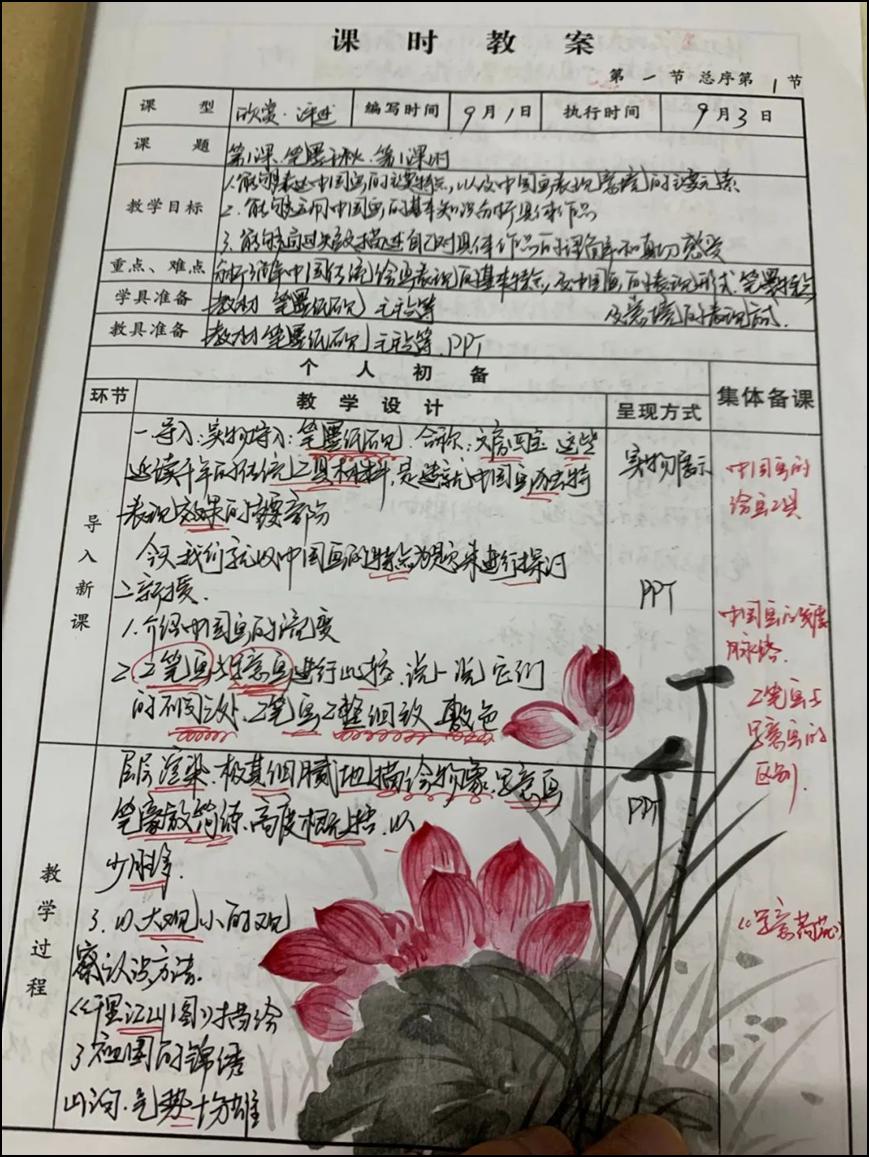 课 时 教 案
第 一 节 总序第 1 节
课 型 欣赏·评述 编写时间 9月1日 执行时间 9月3日
课 题 第1课.笔墨千秋.第1课时
教学目标
1.能够表述中国画的主要特点,以及中国画表现意境的主要元素
2.能够运用中国画的基本知识分析具体作品
3.能够通过 描述自己对具体作品的评价和真切感受
重点、难点 中国传统绘画表现的基本特点,及中国画的表现形式.笔墨特点
及意境的表现方式.
学具准备 教材 笔墨纸砚
教具准备 教材 笔墨纸砚 PPT
个 人 初 备
集体备课
环节 教 学 设 计 呈现方式
导入新课
一.导入:实物导入:笔墨纸砚.合称:文房四宝 这些
延续千年的传统工具材料,是造就中国画独特
表现效果的重要部分
今天我们就以中国画的特点为题来进行探讨
二新授.
1.介绍中国画的流变
2.工笔画与写意画进行比较.说一说它们
的不同之处.工笔画工整细致 敷色
实物展示
PPT
中国画的
绘画工具
中国画的发展
脉络.
工笔画与
写意画的
区别.
教学过程
层层渲染.极其细腻地描绘物象.写意画
笔豪放简练.高度概括.以
少胜多.
3.以大观小的观
察认识方法.
《千里江山图》描绘
了祖国的锦绣
山河.气势十分雄
PPT
《写意荷花》